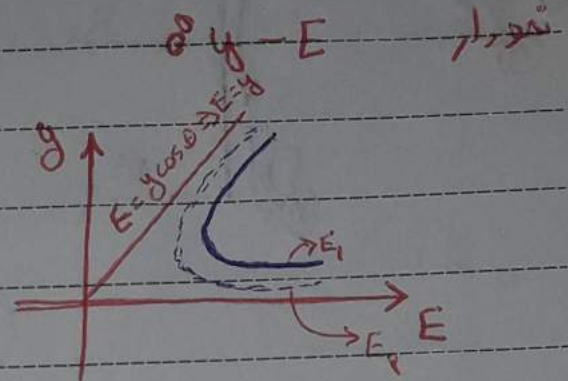 نمودار y - E :
y
E = y cosθ ⇒ E = y
E₁
E
E₂